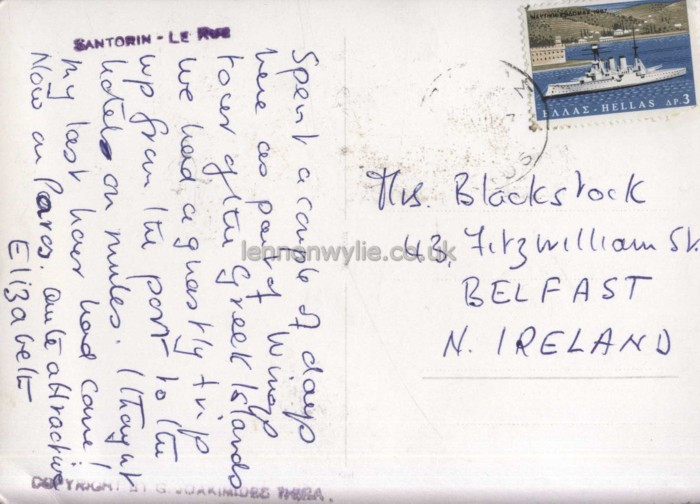 SANTORIN - LE RUE
Spent a couple of days
here as part of Wings
tour of the Greek Islands
we had a ghastly trip
up from the port to the
hotel on mules. I thought
my last hour had come!
Now on Paros. quite attractive
Elizabeth
COPYRIGHT BY G. JOAKIMIDES THIRA.
ΕΛΛΑΣ - HELLAS ΔΡ. 3
Mrs. Blackstock
43, Fitzwilliam St.
BELFAST
N. IRELAND
lennonwylie.co.uk